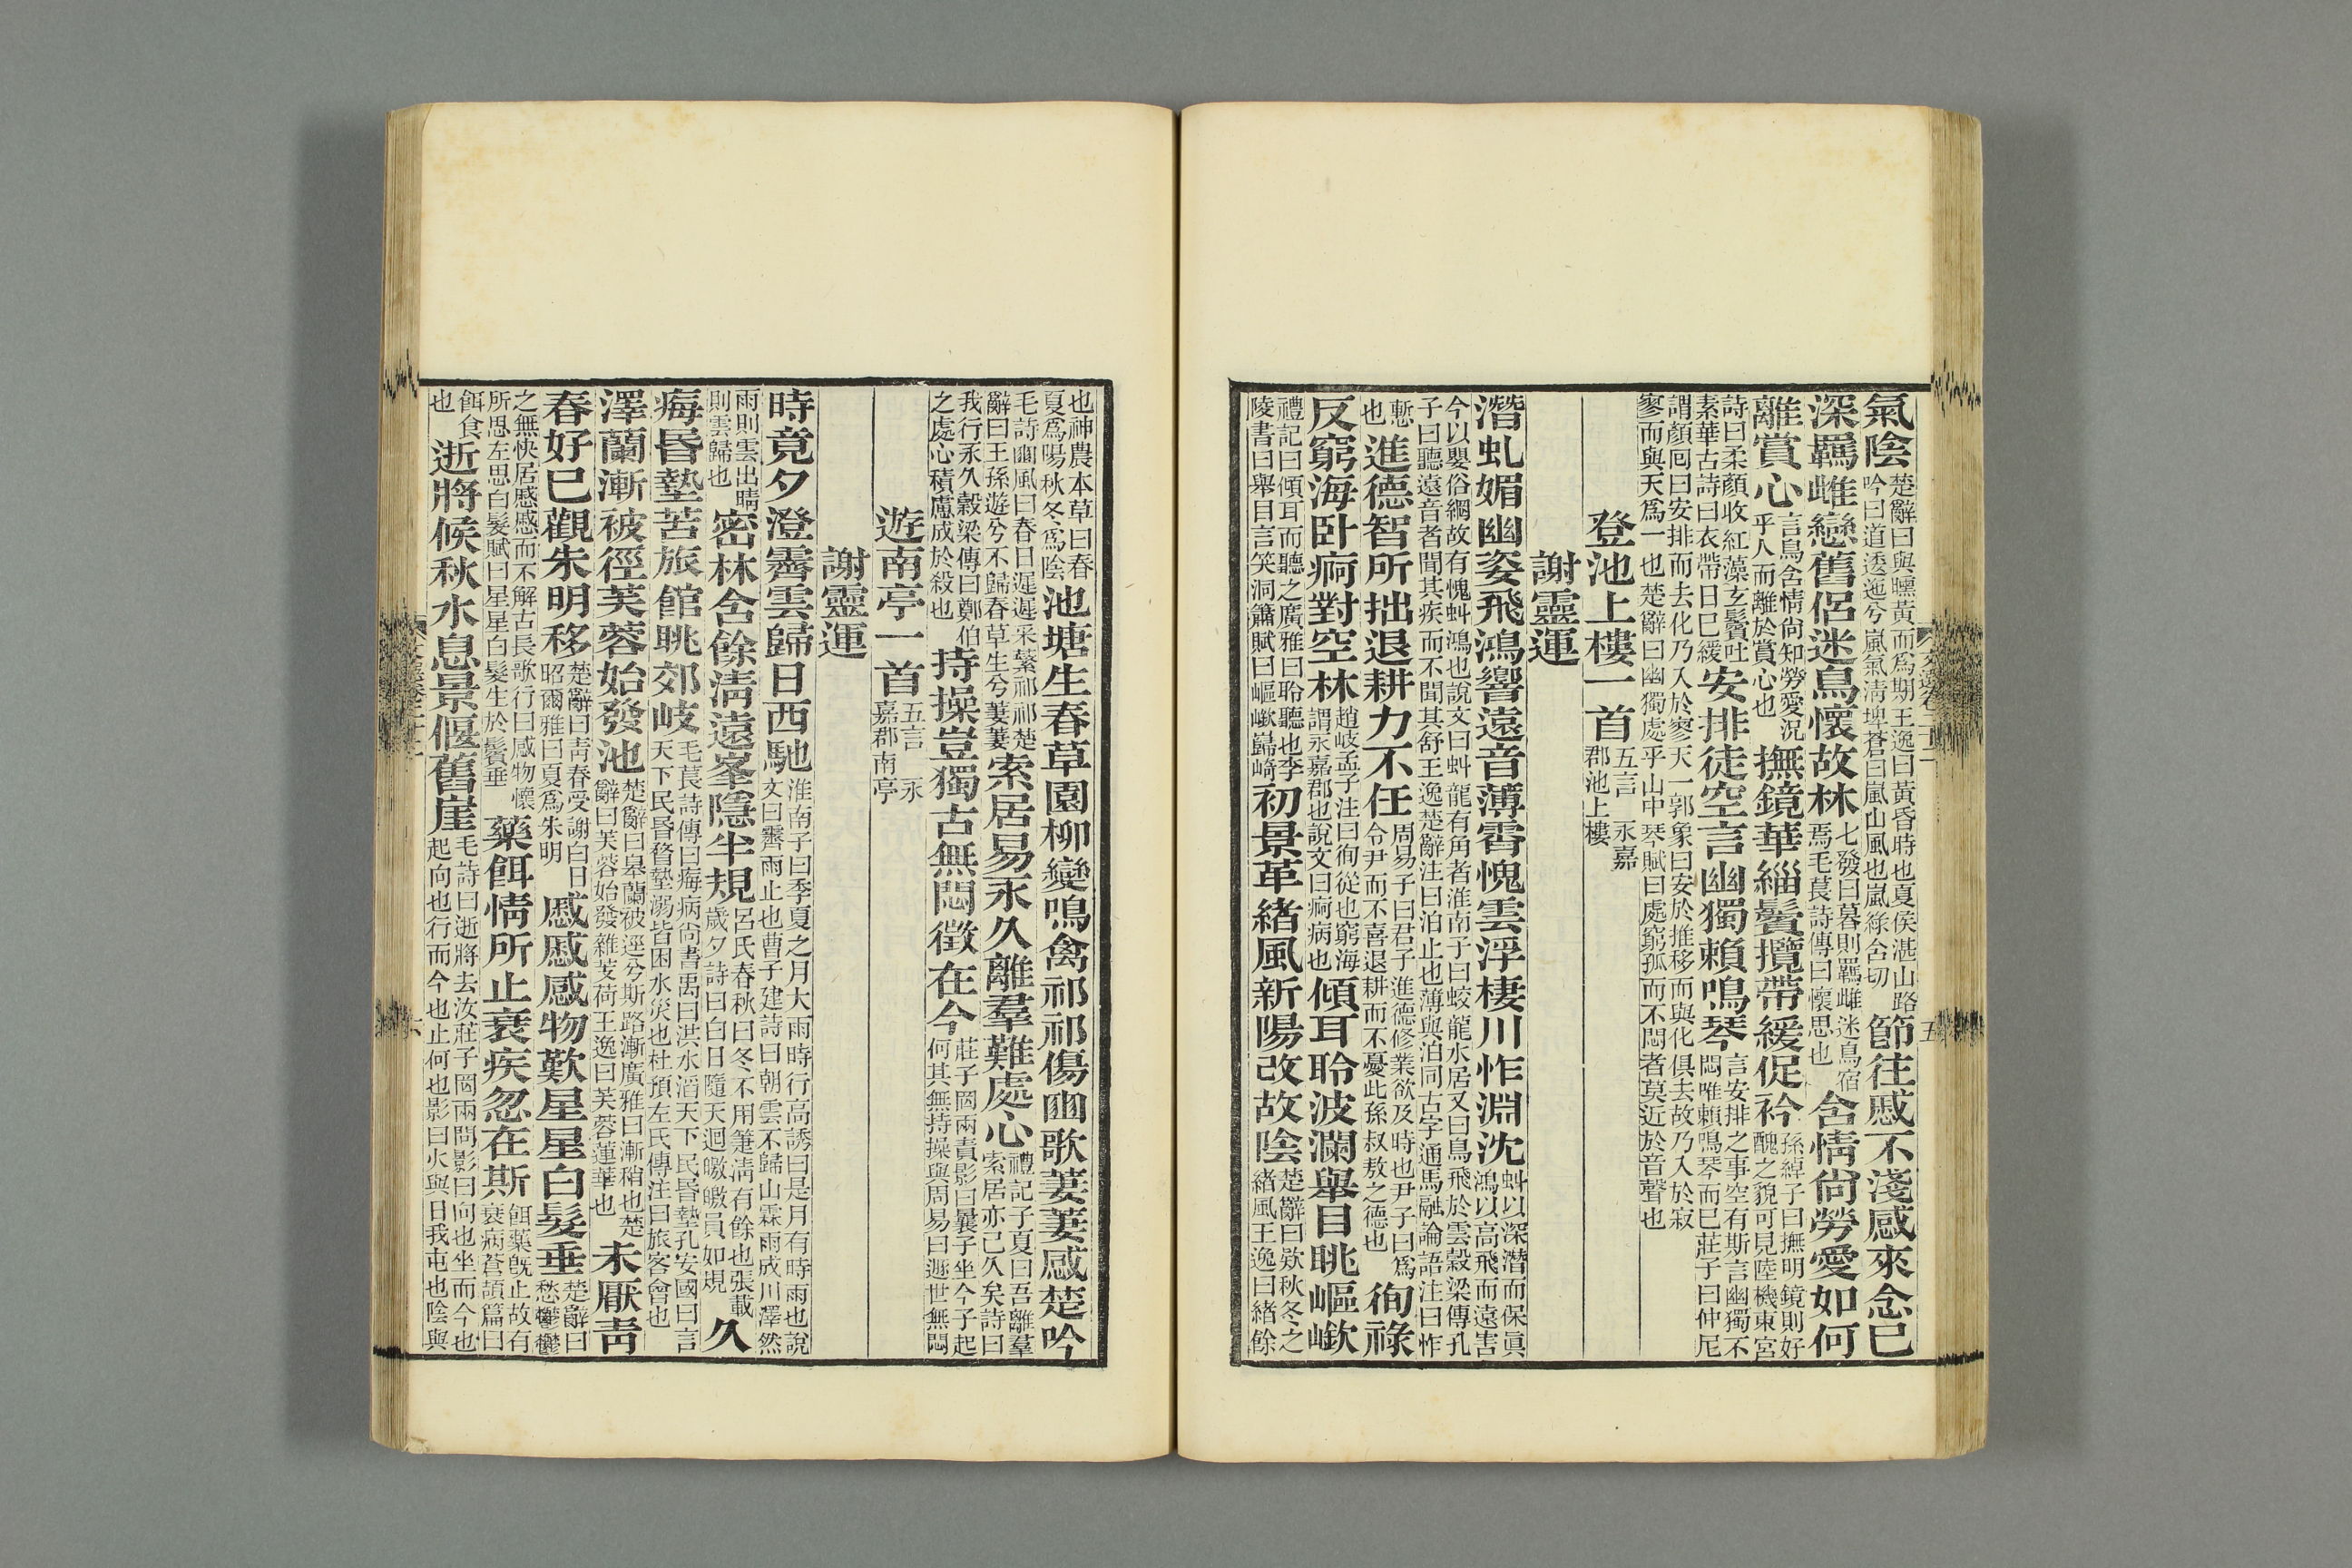 氣陰楚辭曰與曛黃而爲期王逸曰黃昏時也夏侯湛山路吟曰道逶迤兮嵐氣淸埤蒼曰嵐山風也嵐綠含切節往慼不淺感來念已
深羈雌戀舊侶迷鳥懷故林七發曰暮則羈雌迷鳥宿焉毛萇詩傳曰懷思也含情尙勞愛如何
離賞心言鳥含情尙知勞愛況乎人而離於賞心也撫鏡華緇鬢攬帶緩促衿孫綽子曰撫明鏡則好醜之貌可見陸機東宮
詩曰柔顏收紅藻玄鬢吐素華古詩曰衣帶日已緩安排徒空言幽獨賴鳴琴言安排之事空有斯言幽獨不悶唯賴鳴琴而已莊子曰仲尼
謂顏囘曰安排而去化乃入於寥天一郭象曰安於推移而與化俱去故乃入於寂寥而與天爲一也楚辭曰幽獨處乎山中琴賦曰處窮孤而不悶者莫近於音聲也
登池上樓一首五言 永嘉郡池上樓
謝靈運
潛虬媚幽姿飛鴻響遠音薄霄愧雲浮棲川怍淵沈虯以深潛而保眞鴻以高飛而遠害
今以嬰俗網故有愧虯鴻也說文曰虯龍有角者淮南子曰蛟龍水居又曰鳥飛於雲穀梁傳孔子曰聽遠音者聞其疾而不聞其舒王逸楚辭注曰泊止也薄與泊同古字通馬融論語注曰怍
慙也進德智所拙退耕力不任周易子曰君子進德修業欲及時也尹子曰爲令尹而不喜退耕而不憂此孫叔敖之德也徇祿
反窮海臥痾對空林趙岐孟子注曰徇從也窮海謂永嘉郡也說文曰痾病也傾耳聆波瀾舉目眺嶇嶔
禮記曰傾耳而聽之廣雅曰聆聽也李陵書曰舉目言笑洞簫賦曰嶇嶔巋崎初景革緖風新陽改故陰楚辭曰欸秋冬之緖風王逸曰緖餘
也神農本草曰春夏爲陽秋冬爲陰池塘生春草園柳變鳴禽祁祁傷豳歌萋萋感楚吟
毛詩豳風曰春日遲遲采蘩祁祁楚辭曰王孫遊兮不歸春草生兮萋萋索居易永久離羣難處心禮記子夏曰吾離羣索居亦已久矣詩曰
我行永久穀梁傳曰鄭伯之處心積慮成於殺也持操豈獨古無悶徵在今莊子罔兩責影曰曩子坐今子起何其無持操與周易曰遯世無悶
遊南亭一首五言 永嘉郡南亭
謝靈運
時竟夕澄霽雲歸日西馳淮南子曰季夏之月大雨時行高誘曰是月有時雨也說文曰霽雨止也曹子建詩曰朝雲不歸山霖雨成川澤然
雨則雲出晴則雲歸也密林含餘淸遠峯隱半規呂氏春秋曰冬不用箑淸有餘也張載歲夕詩曰白日隨天迴皦皦員如規久
痗昬墊苦旅館眺郊岐毛萇詩傳曰痗病尙書禹曰洪水滔天下民昬墊孔安國曰言天下民昬瞀墊溺皆困水災也杜預左氏傳注曰旅客會也
澤蘭漸被徑芙蓉始發池楚辭曰皋蘭被逕兮斯路漸廣雅曰漸稍也楚辭曰芙蓉始發雜芰荷王逸曰芙蓉蓮華也未厭靑
春好已觀朱明移楚辭曰靑春受謝白日昭爾雅曰夏爲朱明慼慼感物歎星星白髮垂楚辭曰愁鬱鬱
之無快居慼慼而不解古長歌行曰感物懷所思左思白髮賦曰星星白髮生於鬢垂藥餌情所止衰疾忽在斯餌藥旣止故有衰病蒼頡篇曰
餌食也逝將候秋水息景偃舊崖毛詩曰逝將去汝莊子罔兩問影曰向也坐而今也起向也行而今也止何也影曰火與日我屯也陰與